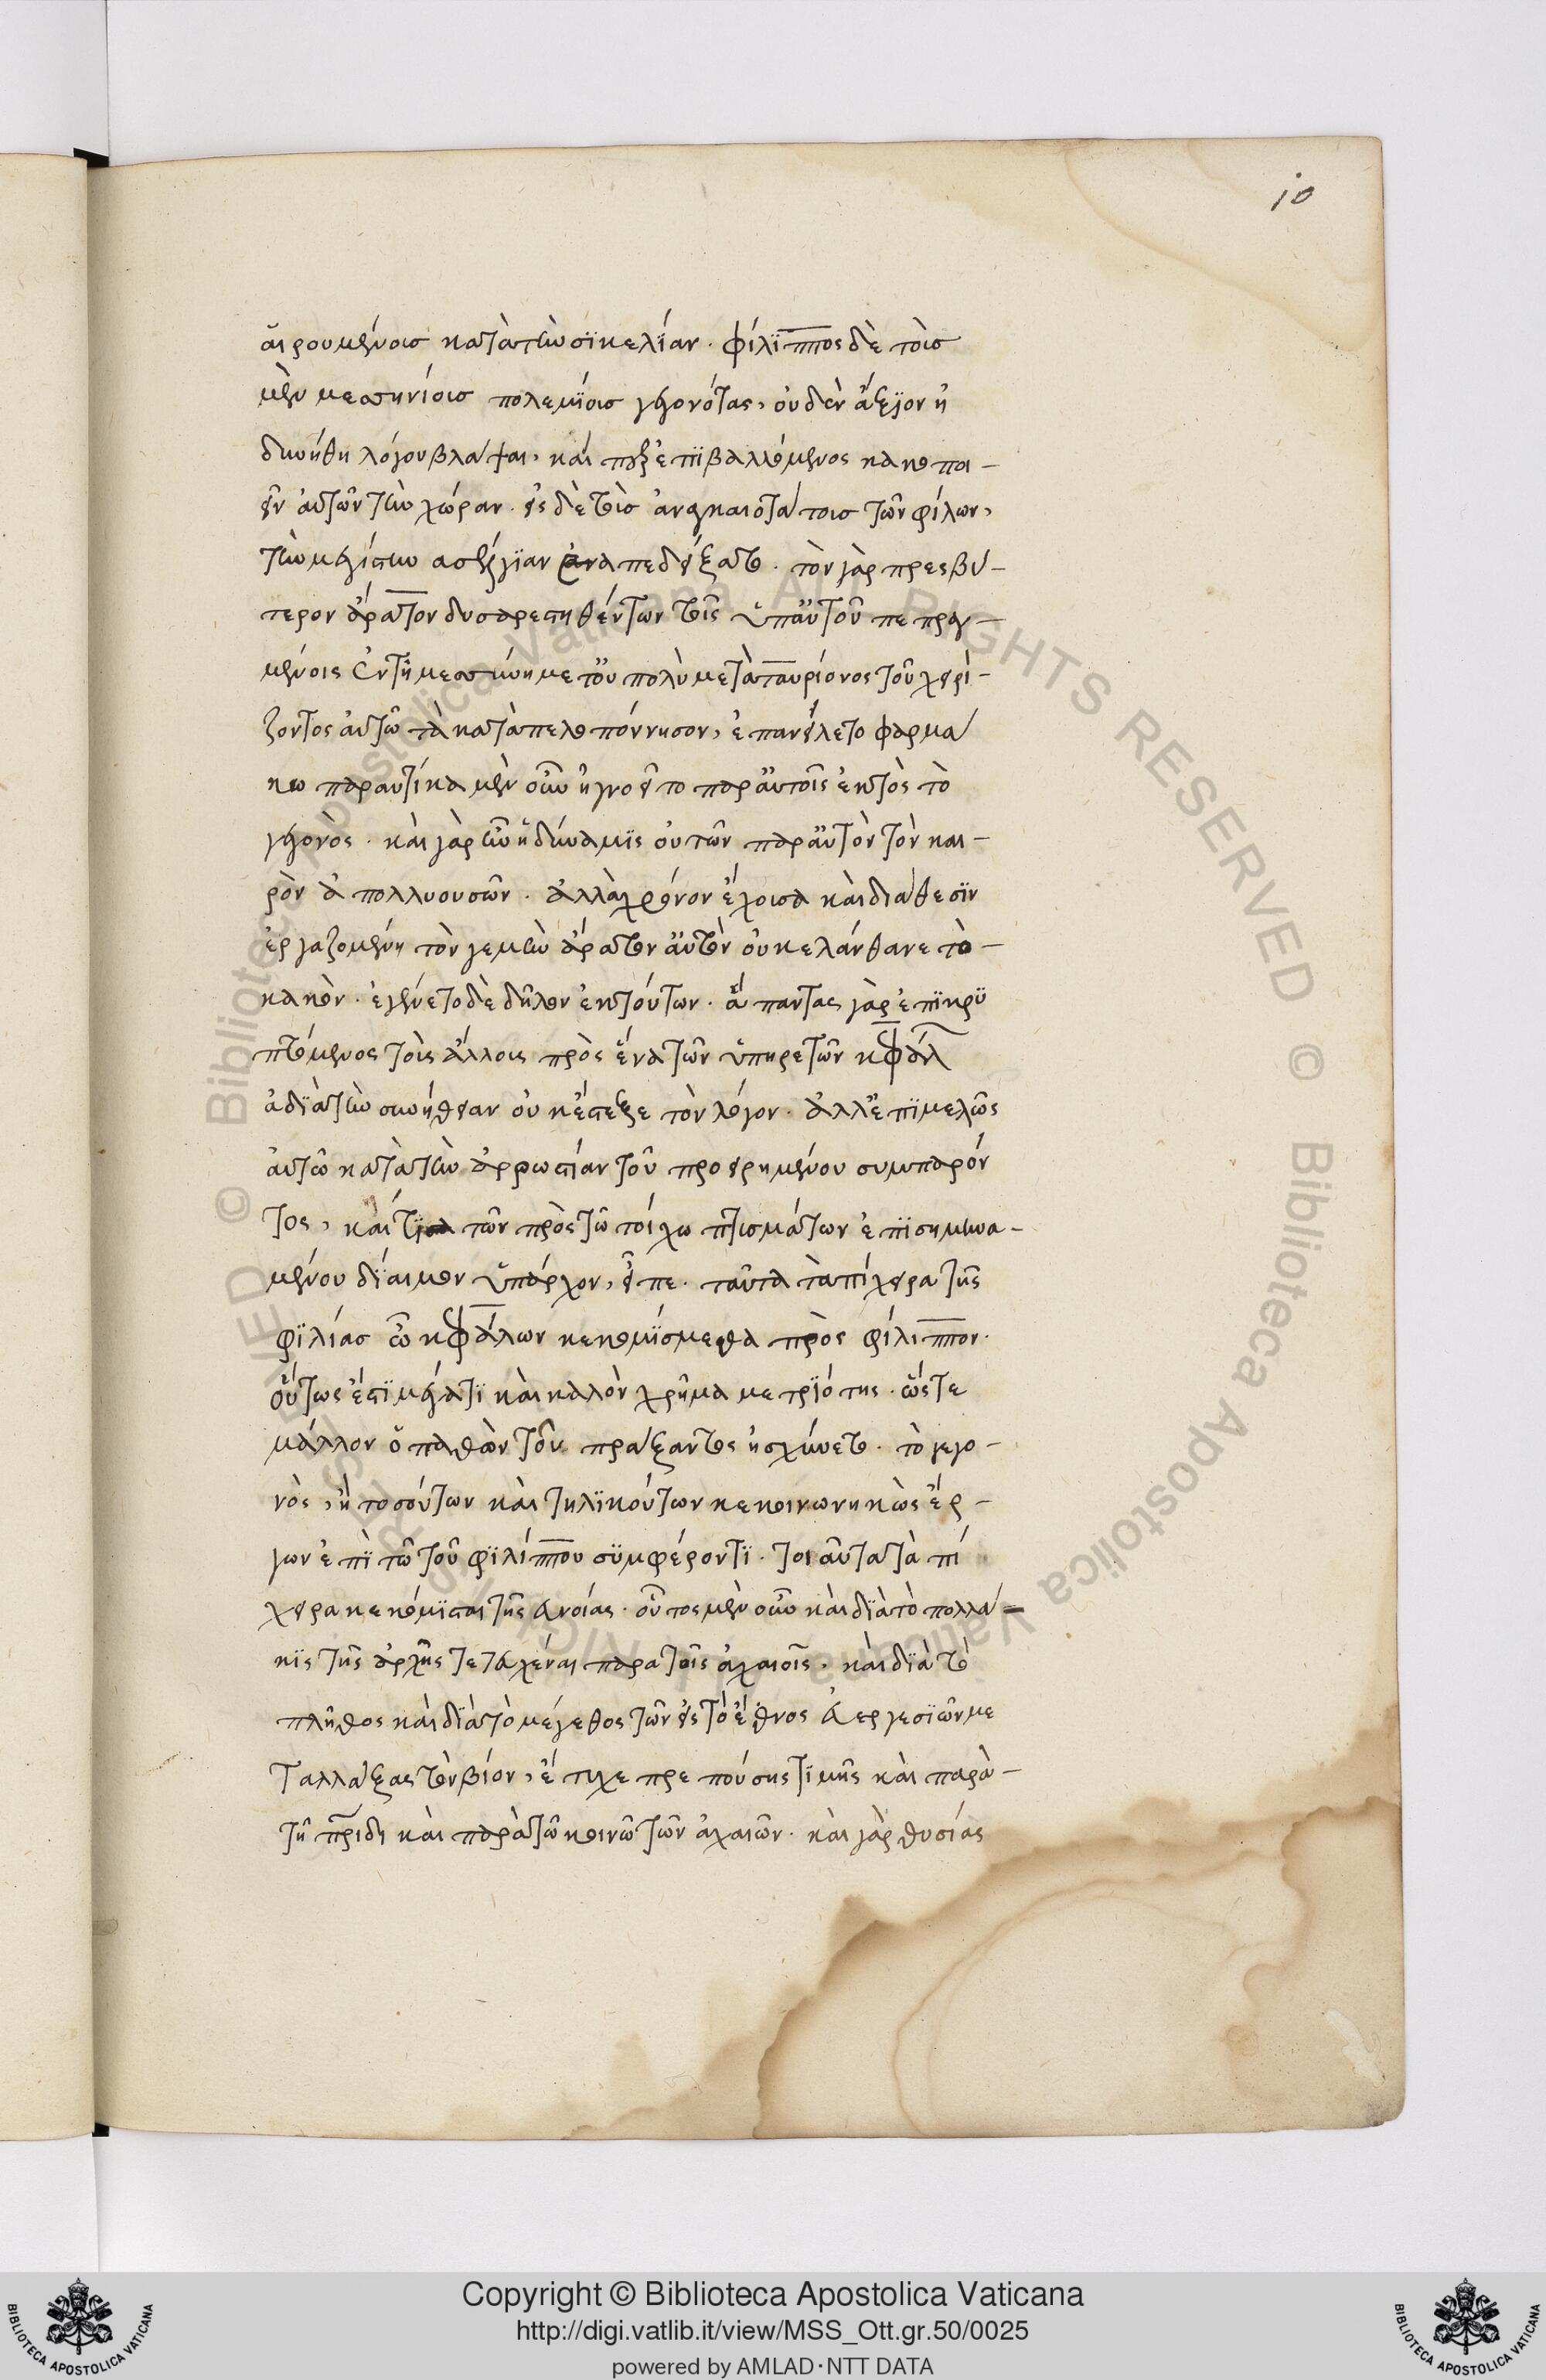 10
αἱρουμένοισ κατὰ τὴν σϊκελΐαν. φίλϊππος δὲ τοῖσ
μὲν μεσηνίοισ πολεμΐοισ γεγονότας, οὐδὲν ἄξϊον ἠ
δυνήθη λόγου βλάψαι, καί περ ἐπϊβαλλόμενος κακοποι-
εῖν αὐτῶν τὴν χώραν. εἰς δὲ τοὺσ ἀναγκαιοτάτοισ τῶν φίλων,
τὴν μεγίστην ασέλγϊαν ἐναπεδείξατο. τὸν γὰρ πρεσβύ-
τερον ἄρατον δυσαρεστηθέντων τοῖς ὑπ' αὐτοῦ πεπραγ-
μένοις ἐν τῆ μεσσήνη μετ' οὐ πολὺ μετὰ ταυρίονος τοῦ χειρὶ-
ζοντος αὐτῶ τὰ κατὰ πελοπόννησον, ἐπανείλετο φαρμά
κω παραυτίκα μὲν οὖν ἠγνοεῖτο παρ' αὐτοῖς ἐκτὸς τὸ
γεγονὸς. καὶ γὰρ ἦν ἡ δύναμϊς οὐ τῶν παρ' αὐτὸν τὸν και-
ρὸν ἀπολλυουσῶν. ἀλλὰ χρόνον ἔχοισα καὶ διάθεσϊν
ἐργαζομένη τὸν γε μὴν ἄρατον αὐτὸν οὐκ ελάνθανε τὸ-
κακὸν. ἐγένετο δὲ δῆλον ἐκ τούτων. ἅπαντας γὰρ ἐπϊκρϋ
πτόμενος τοὶς ἄλλοις πρὸς ἕνα τῶν ὑπηρετῶν κεφάλ
α δϊὰ τὴν συνήθειαν οὐκ ἔστεξε τὸν λόγον. ἀλλ' ἐπϊμελῶς
αὐτῶ κατὰ τὴν ἀρρωστίαν τοῦ προειρημένου συμπαρόν
τος, καί τϊνα τῶν πρὸς τῶ τοίχω πτισμάτων ἐπϊσημηνα-
μένου δΐαιμον ὑπάρχον, εἶπε. ταῦτα τἀπίχειρα τῆς
φϊλίασ ὦ κεφάλων κεκομϊσμεθα πρὸς φίλιππον.
οὕτως ἐστϊ μέγα τϊ καὶ καλὸν χρῆμα μετρϊότης. ὥστε
μάλλον ὁ παθὼν τοῦ πράξαντος ἠσχύνετο. τὸ γεγο-
νὸς, ἠ τοσούτων καὶ τηλϊκούτων κεκοινωνηκὼς ἔρ-
γων ἐπϊ τῶ τοῦ φϊλίππου σϋμφέροντϊ. τοι αῦτα τὰ πί
χειρα κεκόμϊσται τῆς ευνοίας. οὗτος μὲν οὖν καὶ δϊὰ τὸ πολλά-
κϊς τῆς ἀρχῆς τετευχέναι παρα τοῖς ἀχαιοῖς, καὶ δϊὰ τὸ
πλῆθος καὶ δϊὰ τὸ μέγεθος τῶν εἰς τὸ ἔθνος ἐυεργεσϊῶν με
ταλλάξας τὸν βίον, ἔτυχε πρεπούσης τϊμῆς καὶ παρὰ-
τῆ πατρίδι καὶ παρὰ τῶ κοινῶ τῶν ἀχαιῶν. καὶ γὰρ θυσίας
Copyright © Biblioteca Apostolica Vaticana
http://digi.vatlib.it/view/MSS_Ott.gr.50/0025
powered by AMLAD·NTT DATA